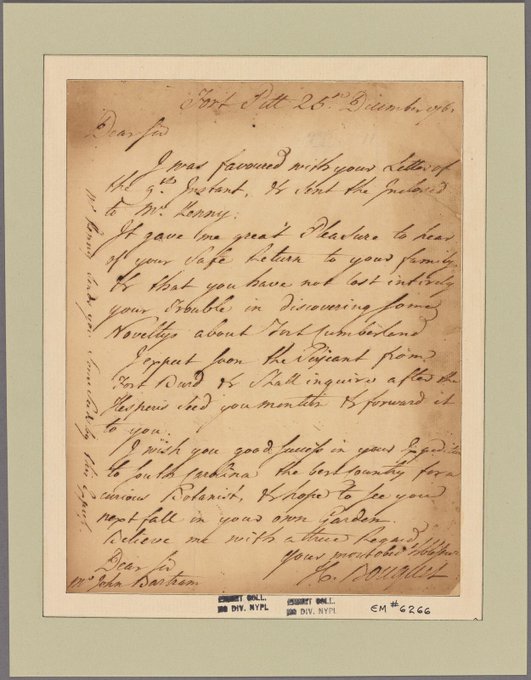 Fort Pitt 25th December 1761
Dear Sir
I was favoured with your Letter of
the 9th Instant, & sent the Inclosed
to Mr. Kenny.
It gave me great Pleasure to hear
of your Safe Return to your family
& that you have not lost intirely
your Trouble in Discovering Some
Noveltys about Fort Cumberland
I expect soon the from
Fort Burd & Shall inquire after the
Hesperis Seed you mention & forward it
to you.
I wish you good Success in your Expedition
to South Carolina the best Country for a
curious Botanist, & hope to see you
next fall in your own Garden.
Believe me with a true Regard
Dear Sir
Your most obed
H. Bouquet
Mr. John Bartram
Mr. Kenny send you by this Express.
EMMET COLL.
MS DIV. NYPL
EMMET COLL.
MS DIV. NYPL
EM#6266